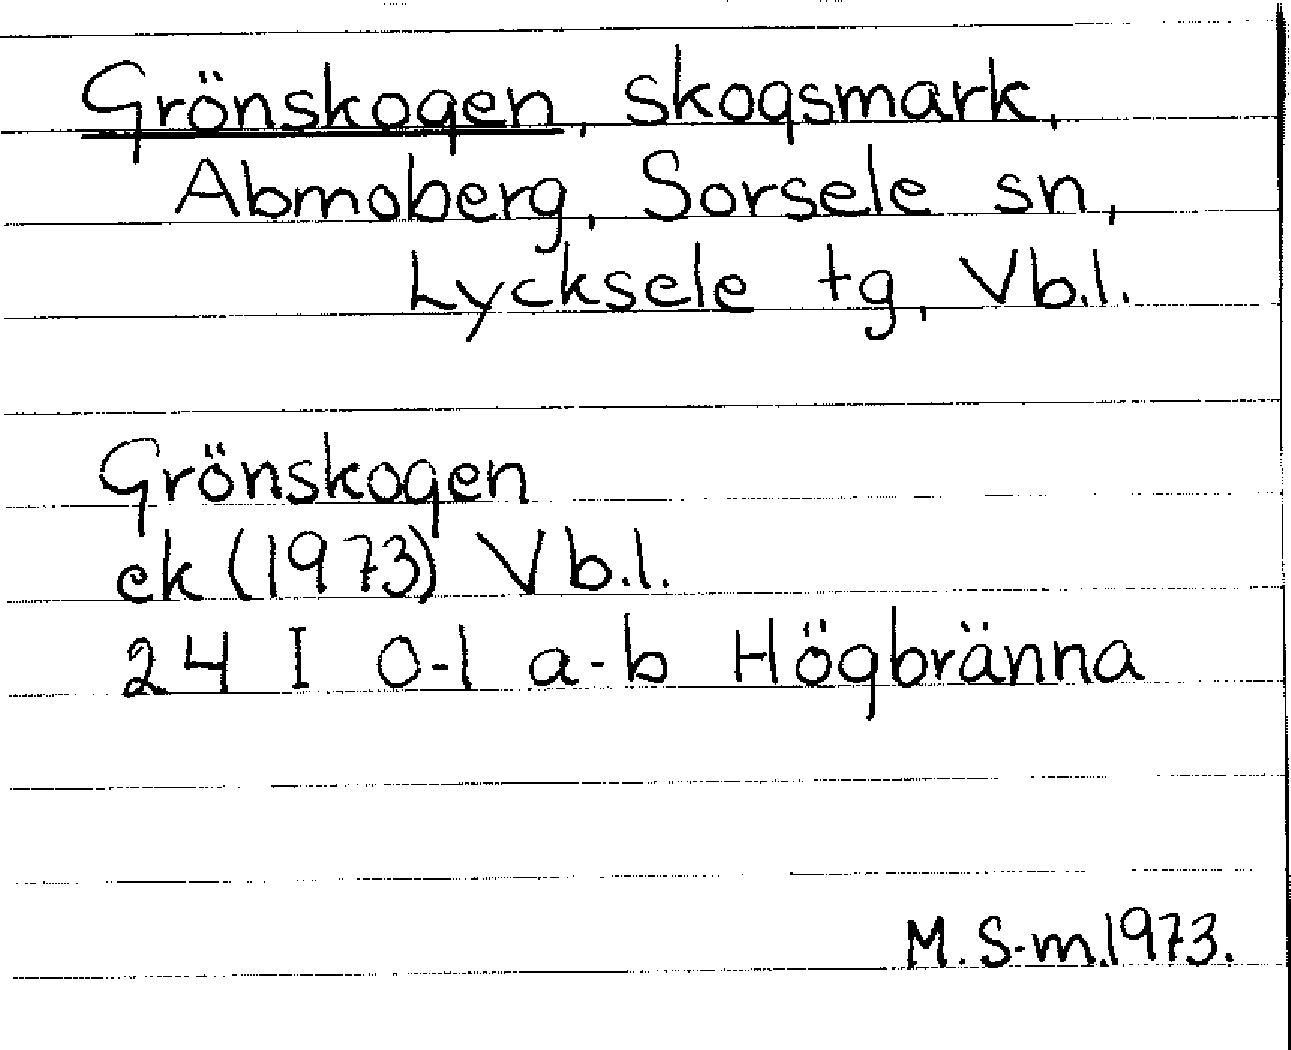 Grönskogen, skogsmark,
Abmoberg, Sorsele sn,
Lycksele tg, Vb.l.
Grönskogen
ek (1973) Vb.l.
24 I 0-1 a-b Högbränna
M. S-m. 1973.